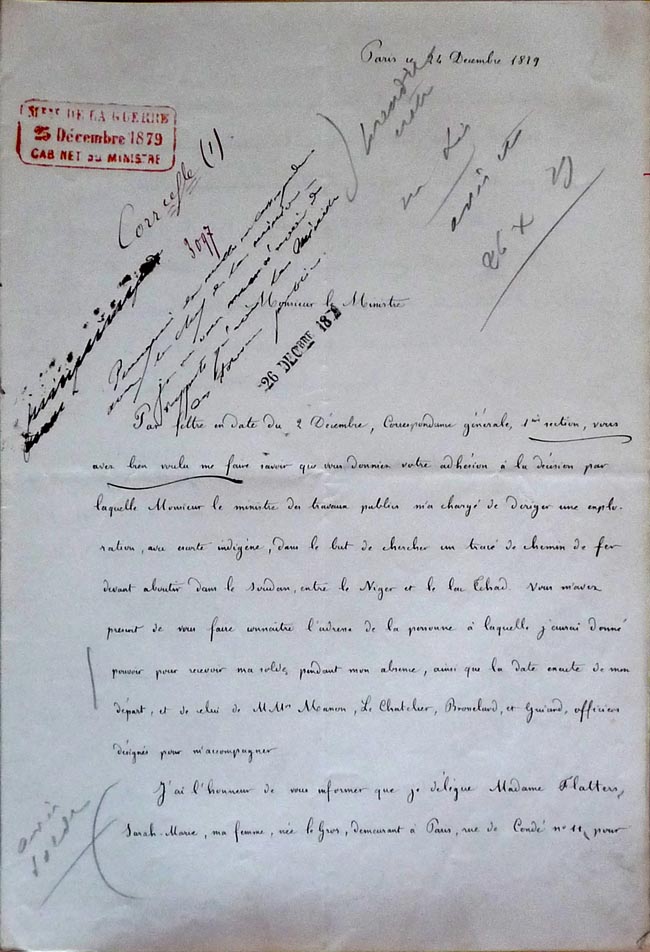 Paris ce 24 Décembre 1879
MIN DE LA GUERRE
25 Décembre 1879
CABINET DU MINISTRE
Correcelle (1)
3097
prendre
note
avis
26 X 79
Monsieur le Ministre
26 DECBRE 1879
Par lettre en date du 2 Décembre, Correspondance générale, 1ère section, vous
avez bien voulu me faire savoir que vous donniez votre adhésion à la décision par
laquelle Monsieur le ministre des travaux publics m'a chargé de diriger une explo-
ration, avec escorte indigène, dans le but de chercher un tracé de chemin de fer
devant aboutir dans le Soudan, entre le Niger et le lac Tchad. Vous m'avez
prescrit de vous faire connaître l'adresse de la personne à laquelle j'aurai donné
pouvoir pour recevoir ma solde, pendant mon absence, ainsi que la date exacte de mon
départ, et de celui de MMrs Masson, Le Chatelier, Brosselard, et Guiard, officiers
désignés pour m'accompagner
J'ai l'honneur de vous informer que je délègue Madame Flatters,
Sarah-Marie, ma femme, née le Gros, demeurant à Paris, rue de Condé n° 11, pour
avis
solde